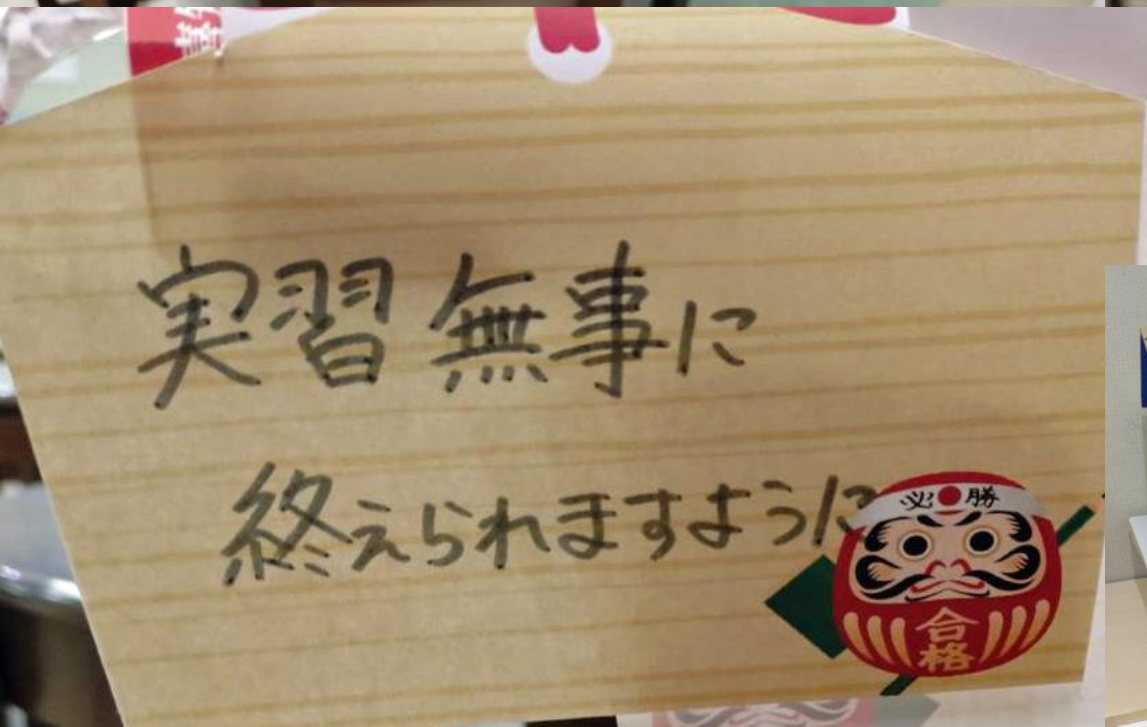 実習無事に
終えられますように
必勝
合格